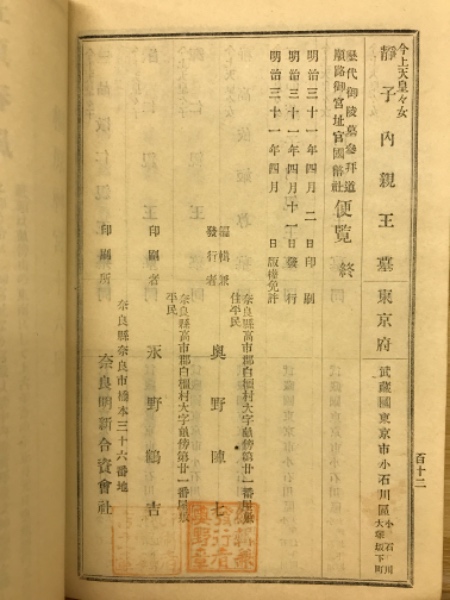 今上天皇々女
靜子內親王墓 東京府 武藏國東京市小石川區 小石川大塚坂下町
百十二
歷代御陵墓參拜道
順路御宮址官國幣社 便覽 終
明治三十一年四月 二 日印刷
明治三十一年四月十一日發行
明治三十一年四月 日版權免許
奈良縣高市郡白橿村大字畝傍第廿一番屋敷
住平民
編輯兼
發行者 奧野陣七
奈良縣高市郡白橿村大字畝傍第廿一番屋敷
平民
印刷者 永野鶴吉
奈良縣奈良市橋本三十六番地
印刷所 奈良明新合資會社